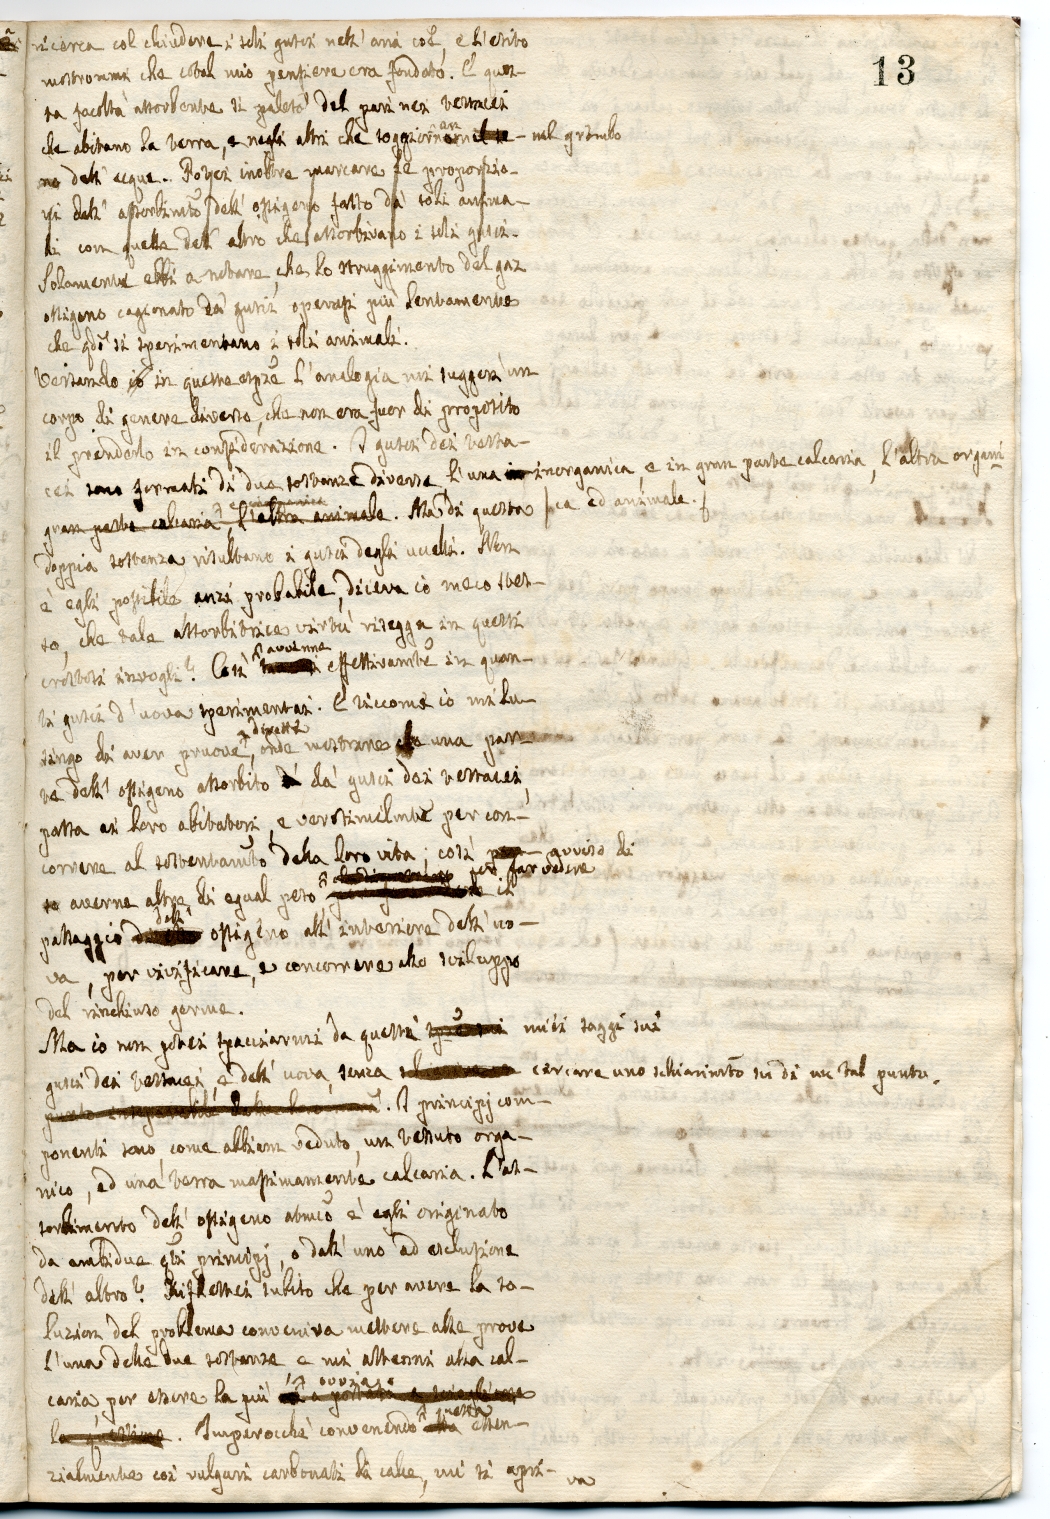 13
ricerca col chiudere i soli gusci nell' aria co͠e, e l'esito
mostrommi che cotal mio pensiere era fondato. E ques-
ta facoltà assorbente si palesò del pari nei testacei
che abitano la terra, e negli altri che soggiornan nel grembo
dell' acque. Potei inoltre marcare le proporzio-
ni dell' assorbim͠to dell' ossigeno fatto da tali anima-
li con quelle dell' altro che assorbivano i soli gusci.
Solamente ebbi a notare, che lo struggimento del gaz
ossigeno cagionato da gusci operasi più lentamente
che q͠do si sperimentano i soli animali.
Versando io in queste esp͠ze l'analogia mi suggerì un
corpo di genere diverso, che non era fuor di proposito
il prenderlo in considerazione. I gusci dei testa-
cei sono formati di due sostanze diverse l'una inorganica, e in gran parte calcaria, l'altra organi
ca ed animale.
gran parte calcaria, l'altra animale. Ma di questa
doppia sostanza risultano i gusci degli uccelli. Non
è egli possibile anzi probabile, diceva io meco stes-
so, che tale assorbitrice virtù risegga in questi
crostosi invogli? Così avvenne effettivam͠te in quan-
ti gusci d'uova sperimentai. E siccome io mi lu-
singo di aver pruove dirette, onde mostrare che una par-
te dell' ossigeno assorbito da' gusci dei testacei,
passa ai loro abitatori, e verosimilm͠te per con-
correre al sostentam͠to della loro vita; così avviso di
averne altre di egual peso per far vedere il
passaggio dell' ossigeno all' interiore dell' uo-
va, per vivificare, e concorrere allo sviluppo
del rinchiuso germe.
Ma io non potei spacciarmi da questi miei saggi sui
gusci dei testacei, e dell' uova, senza cercare uno schiarim͠to su di un tal punto.
I principj com-
ponenti sono come abbiam veduto, un tessuto orga-
nico, ed una terra massimamente calcaria. L'as-
sorbimento dell' ossigeno atmico è egli originato
da ambidue q͠ti principj, o dall' uno ad esclusione
dell' altro? Riflettei subito che per avere la so-
luzion del problema conveniva mettere alle prove
l'una delle due sostanze e mi attenni alla cal-
caria per essere la più ovvia.
Imperocchè convenendo questa essen-
zialmente coi vulgari carbonati di calce, mi si apri-
va